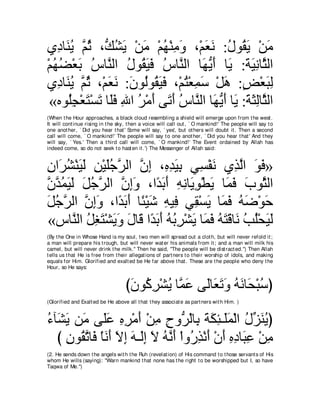 مَنْ يَقُولُ: نَعَمْ، وَمِنْهُمْ مَنْ يَشُكُّ، ثُمَّ يُنَادِي
الثَّانِيَةَ: يَا أَيُّهَا النَّاسُ فَيَقُولُ النَّاسُ بَعْضُهُمْ
لِبَعْضٍ: هَلْ سَمِعْتُمْ، فَيَقُولُونَ: نَعَمْ، ثُمَّ يُنَادِي
الثَّالِثَةَ: يَا أَيُّهَا النَّاسُ أَتَى أَمْرُ اللهِ فَلَا تَسْتَعْجِلُوهُ»
(When the Hour approaches, a black cloud resembling a shield will emerge from the west.
It will continue rising in the sky, then a voice will call out, `O mankind!' The people will say to
one another, `Did you hear that' Some will say, `yes', but others will doubt it. Then a second
call will come, `O mankind!' The people will say to one another, `Did you hear that' And they
will say, `Yes.' Then a third call will come, `O mankind!' The Event ordained by Allah has
indeed come, so do not seek to hasten it.') The Messenger of Allah said:
«فَوَ الَّذِي نَفْسِي بِيَدِهِ، إِنَّ الرَّجُلَيْنِ لَيَنْشُرَانِ
الثَّوْبَ فَمَا يَطْوِيَانِهِ أَبَدًا، وَإِنَّ الرَّجُلَ لَيَمُدَّنَّ
حَوْضَهُ فَمَا يَسْقِي فِيهِ شَيْئًا أَبَدًا، وَإِنَّ الرَّجُلَ
لَيَحْلُبُ نَاقَتَهُ فَمَا يَشْرَبُهُ أَبَدًا قَالَ وَيَشْتَغِلُ النَّاسُ»
(By the One in Whose Hand is my soul, two men will spread out a cloth, but will never refold it;
a man will prepare his trough, but will never water his animals from it; and a man will milk his
camel, but will never drink the milk." Then he said, "The people will be distracted.") Then Allah
tells us that He is free from their allegations of partners to their worship of idols, and making
equals for Him. Glorified and exalted be He far above that. These are the people who deny the
Hour, so He says:
(سُبْحَانَهُ وَتَعَالَى عَمَّا يُشْرِكُونَ)
(Glorified and Exalted be He above all that they associate as partners with Him.)
(يُنَزِّلُ الْمَلَـئِكَةَ بِالْرُّوحِ مِنْ أَمْرِهِ عَلَى مَن يَشَآءُ
مِنْ عِبَادِهِ أَنْ أَنْذِرُواْ أَنَّهُ لاَ إِلَـهَ إِلاَّ أَنَاْ فَاتَّقُونِ)
(2. He sends down the angels with the Ruh (revelation) of His command to those servants of His
whom He wills (saying): "Warn mankind that none has the right to be worshipped but I, so have
Taqwa of Me.")